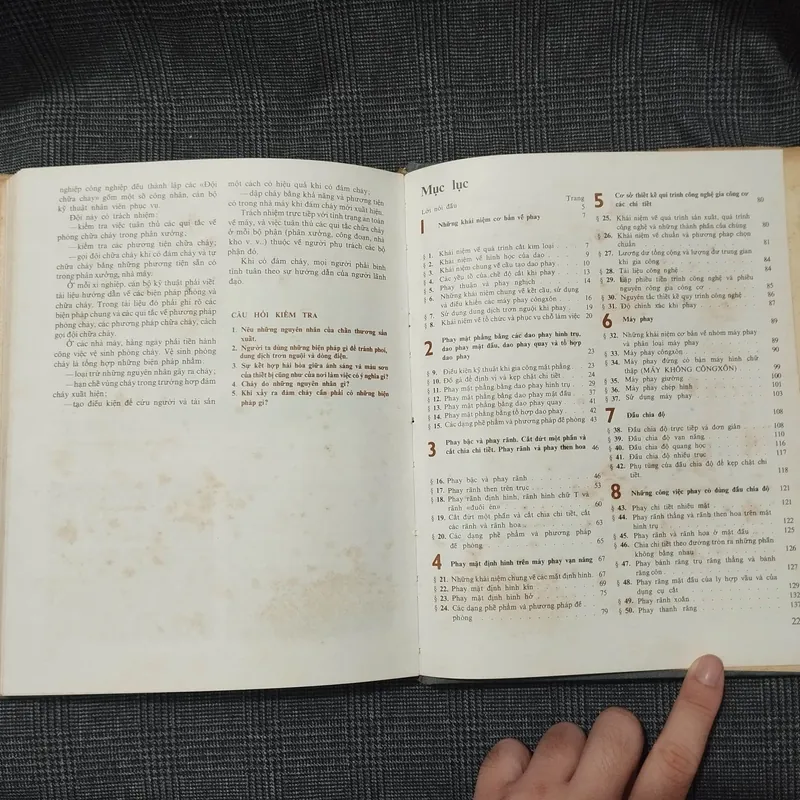 nghiệp công nghiệp đều thành lập các «Đội
chữa cháy» gồm một số công nhân, cán bộ
kỹ thuật nhân viên phục vụ.
Đội này có trách nhiệm:
—kiểm tra việc tuân thủ các qui tắc về
phòng chữa cháy trong phân xưởng;
—kiểm tra các phương tiện chữa cháy;
—gọi đội chữa cháy khi có đám cháy và tự
chữa cháy bằng những phương tiện sẵn có
trong phân xưởng, nhà máy.
Ở mỗi xí nghiệp, cán bộ kỹ thuật phải viết
tài liệu hướng dẫn về các biện pháp phòng và
chữa cháy. Trong tài liệu đó phải ghi rõ các
biện pháp chung và các qui tắc về phương pháp
phòng cháy, các phương pháp chữa cháy, cách
gọi đội chữa cháy.
Ở các nhà máy, hàng ngày phải tiến hành
công việc vệ sinh phòng cháy. Vệ sinh phòng
cháy là tổng hợp những biện pháp nhằm:
—loại trừ những nguyên nhân gây ra cháy;
—hạn chế vùng cháy trong trường hợp đám
cháy xuất hiện;
—tạo điều kiện để cứu người và tài sản
một cách có hiệu quả khi có đám cháy;
—dập cháy bằng khả năng và phương tiện
có trong nhà máy khi đám cháy mới xuất hiện.
Trách nhiệm trực tiếp với tình trạng an toàn
về máy, và việc tuân thủ các qui tắc chữa cháy
ở mỗi bộ phận (phân xưởng, công đoạn, nhà
kho v. v..) thuộc về người phụ trách các bộ
phận đó.
Khi có đám cháy, mọi người phải bình
tĩnh tuân theo sự hướng dẫn của người lãnh
đạo.
CÂU HỎI KIỂM TRA
1. Nêu những nguyên nhân của chấn thương sản
xuất.
2. Người ta dùng những biện pháp gì để tránh phoi,
dung dịch trơn nguội và dòng điện.
3. Sự kết hợp hài hòa giữa ánh sáng và màu sơn
của thiết bị cũng như của nơi làm việc có ý nghĩa gì?
4. Cháy do những nguyên nhân gì?
5. Khi xảy ra đám cháy cần phải có những biện
pháp gì?
Mục lục
Trang
Lời nói đầu 5
1 Những khái niệm cơ bản về phay 7
§ 1. Khái niệm về quá trình cắt kim loại 7
§ 2. Khái niệm về hình học của dao 9
§ 3. Khái niệm chung về cấu tạo dao phay
§ 4. Các yếu tố của chế độ cắt khi phay
§ 5. Phay thuận và phay nghịch 14
§ 6. Những khái niệm chung về kết cấu, sử dụng
và điều khiển các máy phay côngxôn 16
§ 7. Sử dụng dung dịch trơn nguội khi phay 19
§ 8. Khái niệm về tổ chức và phục vụ chỗ làm việc 20
2 Phay mặt phẳng bằng các dao phay hình trụ,
dao phay mặt đầu, dao phay quay và tổ hợp
dao phay 23
§ 9. Điều kiện kỹ thuật khi gia công mặt phẳng 23
§ 10. Đồ gá để định vị và kẹp chặt chi tiết 24
§ 11. Phay mặt phẳng bằng dao phay hình trụ
§ 12. Phay mặt phẳng bằng dao phay mặt đầu 37
§ 13. Phay mặt phẳng bằng dao phay quay 41
§ 14. Phay mặt phẳng bằng tổ hợp dao phay 42
§ 15. Các dạng phế phẩm và phương pháp đề phòng 43
3 Phay bậc và phay rãnh. Cắt đứt một phần và
cắt chia chi tiết. Phay rãnh và phay then hoa 46
§ 16. Phay bậc và phay rãnh 46
§ 17. Phay rãnh then trên trục 53
§ 18. Phay rãnh định hình, rãnh hình chữ T và
rãnh «đuôi én» 60
§ 19. Cắt đứt một phần và cắt chia chi tiết, cắt
các rãnh và rãnh hoa 63
§ 20. Các dạng phế phẩm và phương pháp
đề phòng 65
4 Phay mặt định hình trên máy phay vạn năng 67
§ 21. Những khái niệm chung về các mặt định hình 67
§ 22. Phay mặt định hình kín 69
§ 23. Phay mặt định hình hở 75
§ 24. Các dạng phế phẩm và phương pháp đề
phòng 79
5 Cơ sở thiết kế qui trình công nghệ gia công cơ
các chi tiết 80
§ 25. Khái niệm về quá trình sản xuất, quá trình
công nghệ và những thành phần của chúng 80
§ 26. Khái niệm về chuẩn và phương pháp chọn
chuẩn 81
§ 27. Lượng dư tổng cộng và lượng dư trung gian
khi gia công 84
§ 28. Tài liệu công nghệ 84
§ 29. Lập phiếu tiến trình công nghệ và phiếu
nguyên công gia công cơ 85
§ 30. Nguyên tắc thiết kế qui trình công nghệ 86
§ 31. Độ chính xác khi phay 87
6 Máy phay 89
§ 32. Những khái niệm cơ bản về nhóm máy phay
và phân loại máy phay 89
§ 33. Máy phay côngxôn 90
§ 34. Máy phay đứng có bàn máy hình chữ
thập (MÁY KHÔNG CÔNGXÔN) 99
§ 35. Máy phay giường 99
§ 36. Máy phay chép hình 100
§ 37. Sử dụng máy phay
7 Đầu chia độ 108
§ 38. Đầu chia độ trực tiếp và đơn giản 108
§ 39. Đầu chia độ vạn năng 110
§ 40. Đầu chia độ quang học 116
§ 41. Đầu chia độ nhiều trục 117
§ 42. Phụ tùng của đầu chia độ để kẹp chặt chi
tiết
8 Những công việc phay có dùng đầu chia độ 121
§ 43. Phay chi tiết nhiều mặt 121
§ 44. Phay rãnh thẳng và rãnh then hoa trên mặt
hình trụ
§ 45. Phay rãnh và rãnh hoa ở mặt đầu
§ 46. Chia chi tiết theo đường tròn ra những phần
không bằng nhau 126
§ 47. Phay bánh răng trụ răng thẳng và bánh
răng côn 127
§ 48. Phay răng mặt đầu của ly hợp vấu và của
dụng cụ cắt 129
§ 49. Phay rãnh xoắn 132
§ 50. Phay thanh răng 137